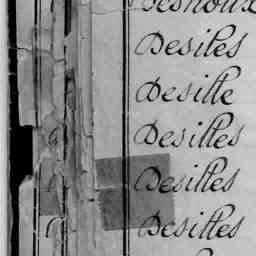 Desnoux
Desiles
Desille
Desilles
Desilles
Desilles